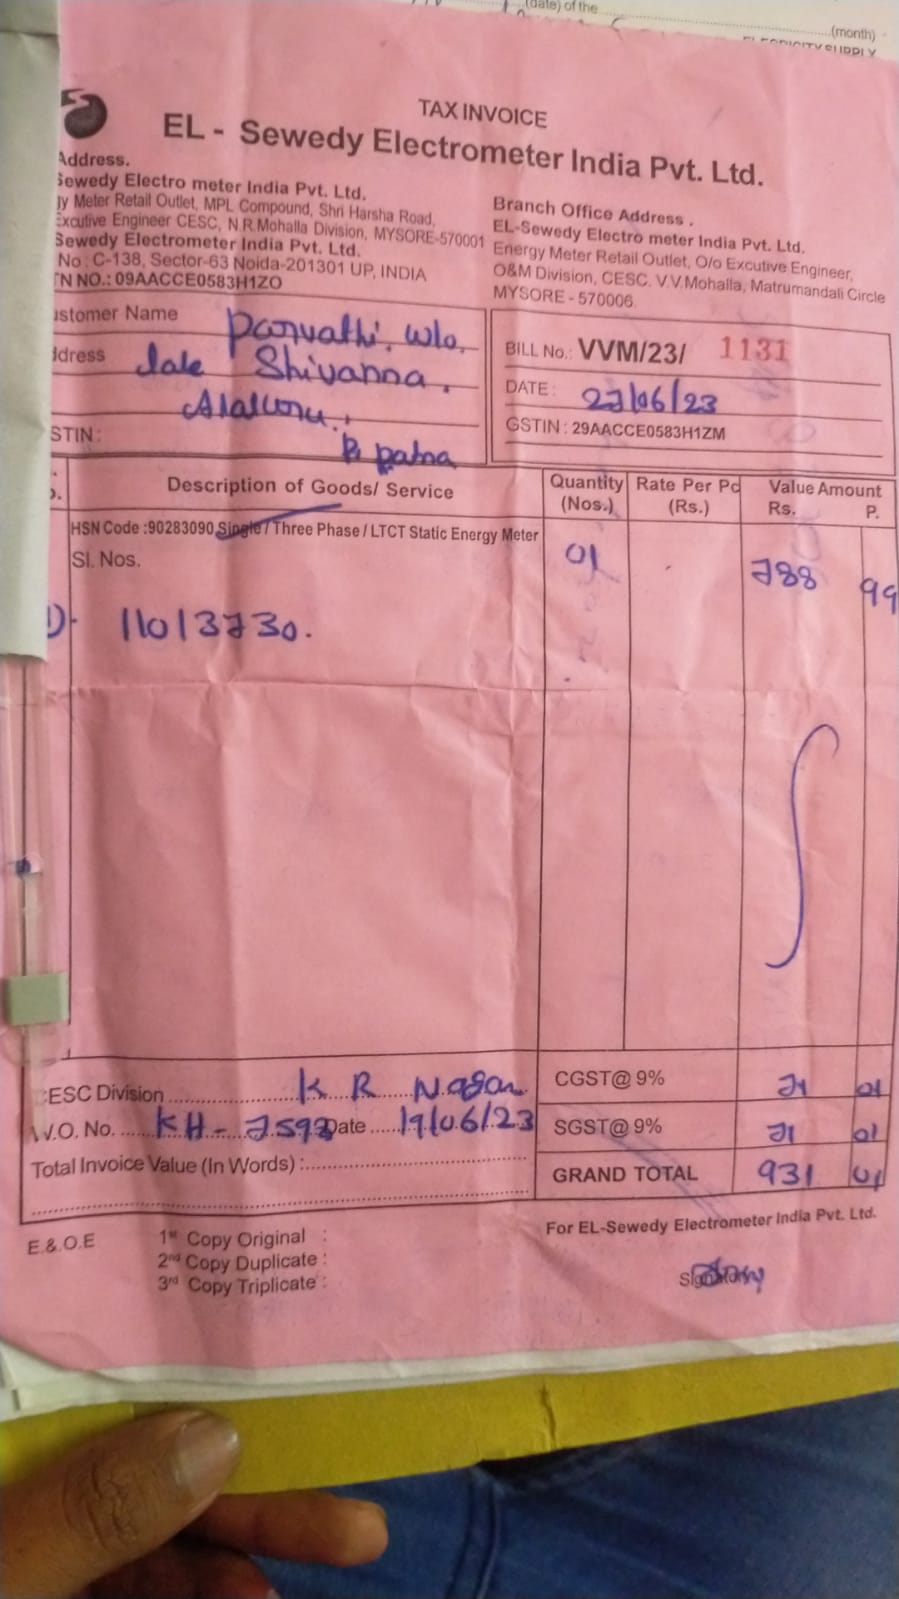 (date) of the
(month)
TAX INVOICE
EL - Sewedy Electrometer India Pvt. Ltd.
Address.
Sewedy Electro meter India Pvt. Ltd.
gy Meter Retail Outlet, MPL Compound, Shri Harsha Road,
Excutive Engineer CESC, N.R.Mohalla Division, MYSORE-570001
Sewedy Electrometer India Pvt. Ltd.
No : C-138, Sector-63 Noida-201301 UP, INDIA
TN NO.: 09AACCE0583H1ZO
Branch Office Address .
EL-Sewedy Electro meter India Pvt. Ltd.
Energy Meter Retail Outlet, O/o Excutive Engineer,
O&M Division, CESC. V.V.Mohalla, Matrumandali Circle
MYSORE - 570006.
ustomer Name Parvathi. w/o.
ddress late Shivanna.
STIN:
BILL No.: VVM/23/ 1131
DATE : 27/06/23
GSTIN : 29AACCE0583H1ZM
Description of Goods/ Service
Quantity (Nos.)
Rate Per Pc (Rs.)
Value Amount
Rs. P.
HSN Code :90283090 Single / Three Phase / LTCT Static Energy Meter
Sl. Nos.
01 788 99
1) 11013730.
CESC Division K R Nagar
W.O. No. KH - 7592 Date 19/06/23
Total Invoice Value (In Words) :
CGST@ 9% 71 01
SGST@ 9% 71 01
GRAND TOTAL 931 01
E.&.O.E
1st Copy Original :
2nd Copy Duplicate :
3rd Copy Triplicate :
For EL-Sewedy Electrometer India Pvt. Ltd.
Signatory